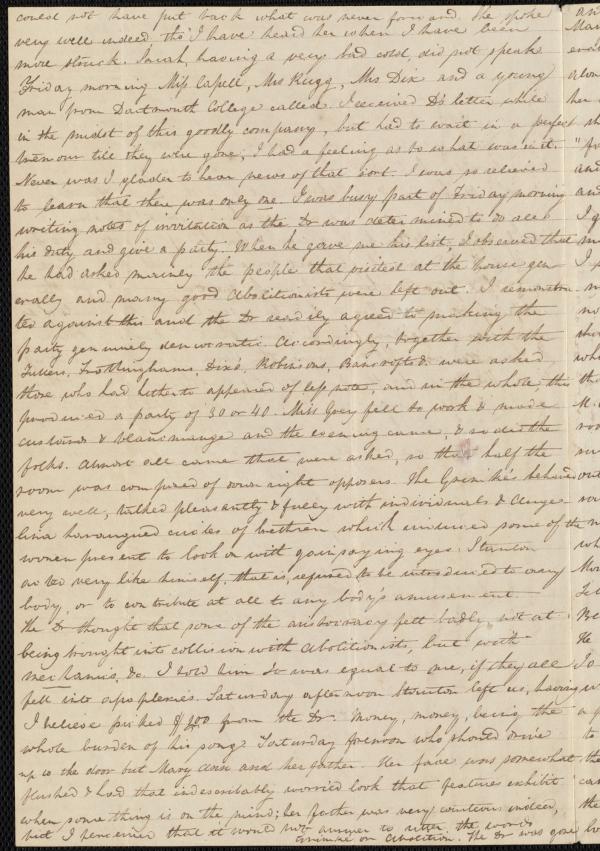 could not have put back what was never forward. She spoke
very well indeed tho' I have heard her when I have been
more struck. Sarah, having a very bad cold did not speak
Friday morning Miss Capell, Mrs Rugg, Mrs Dix and a young
man from Dartmouth College called. I received D's letter while
in the midst of this goodly company, but had to wait in a perfect
tremour till they were gone, I had a feeling as to what was in it.
Never was I gladder to hear news of that sort. I was so relieved
to learn that there was only one. I was busy part of Friday morning
writing notes of invitation as the Dr was determined to do all
his duty and give a party. When he gave me his list, I observed that
he had asked mainly the people that visited at the house gen
erally and many good abolitionists were left out. I remonstra
ted against this and the Dr readily agreed to making the
party genuinely democratic. Accordingly, together with the
Fullers, Frothinghams, Dix's, Robinsons, Bancrofts &c were asked
those who had hitherto appeared of less note, and in the whole, this
produced a party of 30 or 40. Miss Grey fell to work & made
custards & blancmange and the evening came, & so did the
folks. Almost all came that were asked, so that half the
room was composed of downright opposers. The Grimkés behaved
very well, talked pleasantly & fully with individuals & Ange
lina harangued circles of brethren which induced some of the
women present to look on with gainsaying eyes. Stanton
acted very like himself, that is, refused to be introduced to any
body, or to contribute at all to any body's amusement
The Dr thought that some of the aristocracy felt badly, not at
being brought into collision with abolitionists, but with
mechanics, &c. I told him it was equal to me, if they all
fell into apoplexies. Saturday afternoon Stanton left us, having
I believe picked $ 400 from the Dr. Money, money, being the
whole burden of his song. Saturday forenoon who should drive
up to the door but Mary Ann and her father. Her face was somewhat
flushed & had that indescribably worried look that features exhibit
when something is on the mind; her father was very courteous indeed,
but I perceived that it would not answer to utter the words
Grimké or Abolition. The Dr was gone